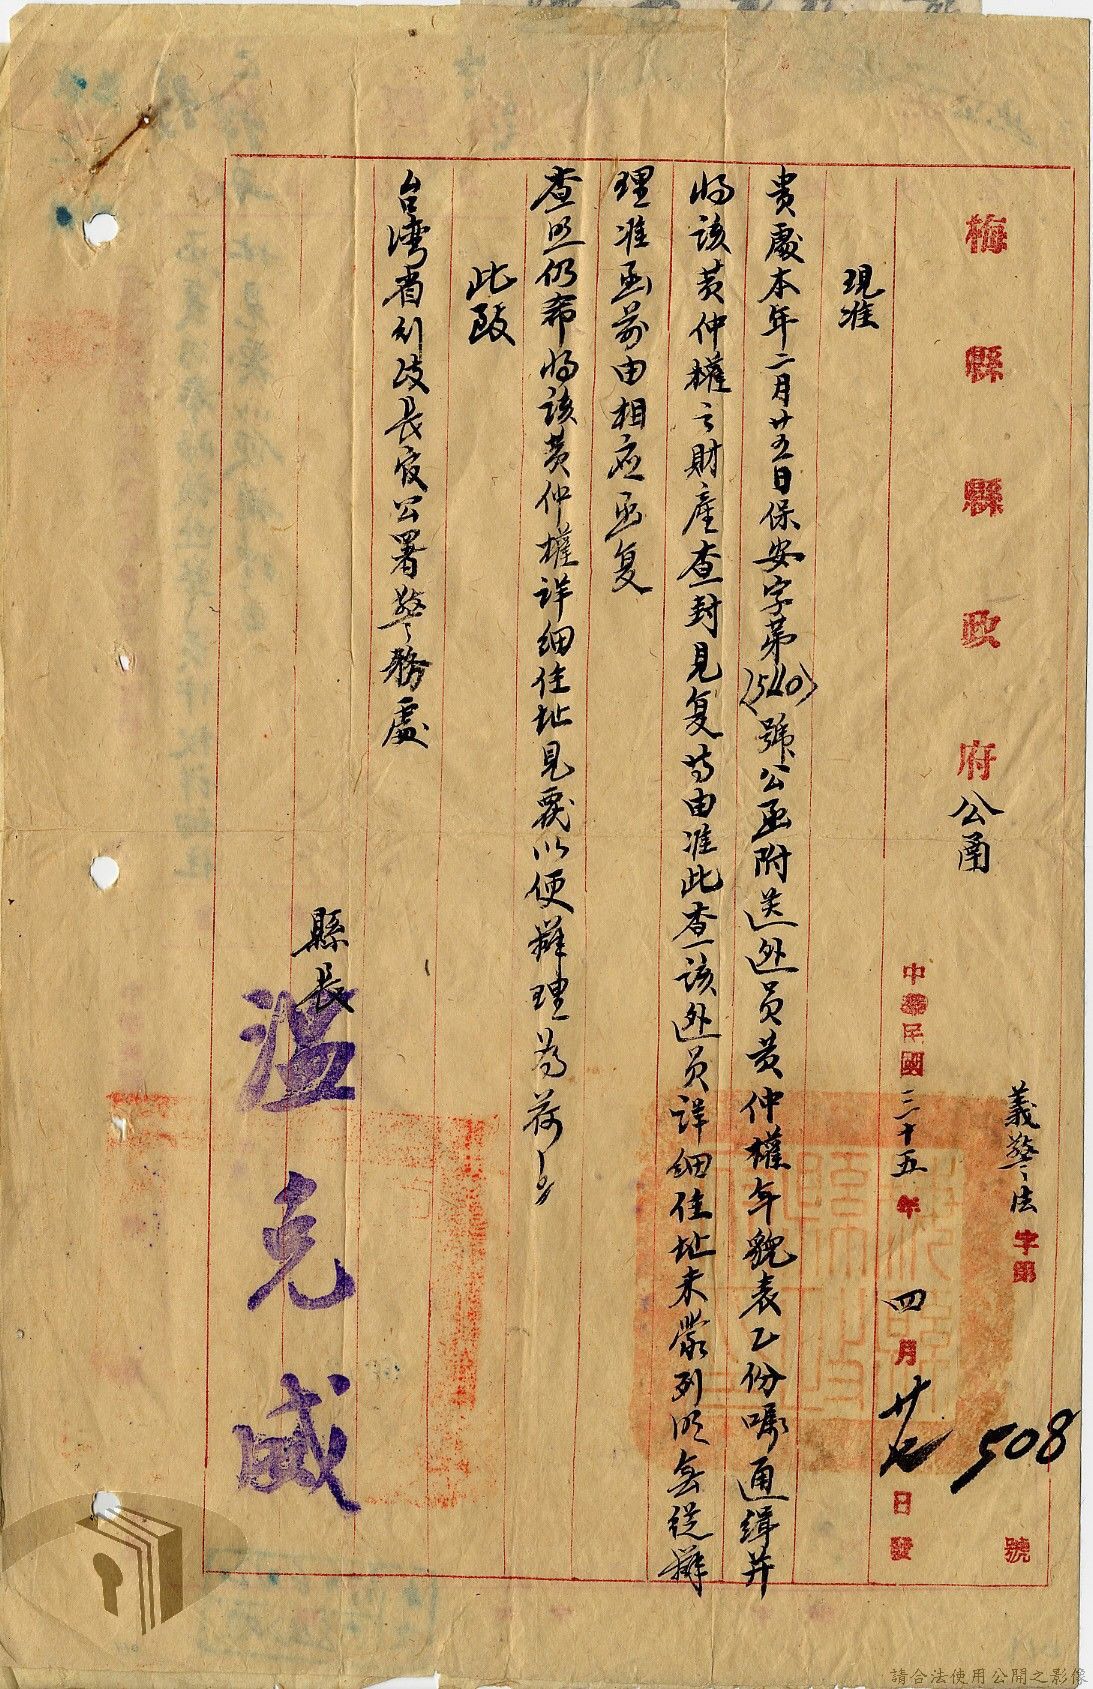 梅縣縣政府公函
義警法字第508號
中華民國三十五年四月廿 日發
現准
貴處本年二月廿五日保安字第(540)號公函附送逃員黃仲權年貌表乙份囑通緝并
將該黃仲權之財產查封見复等由准此查該逃員詳細住址未蒙列明無從辦
理准函前由相应函复
查照仍希將該黃仲權詳細住址見覆以便辦理為荷
此致
台灣省行政長官公署警務處
縣長
溫克威
請合法使用公開之影像